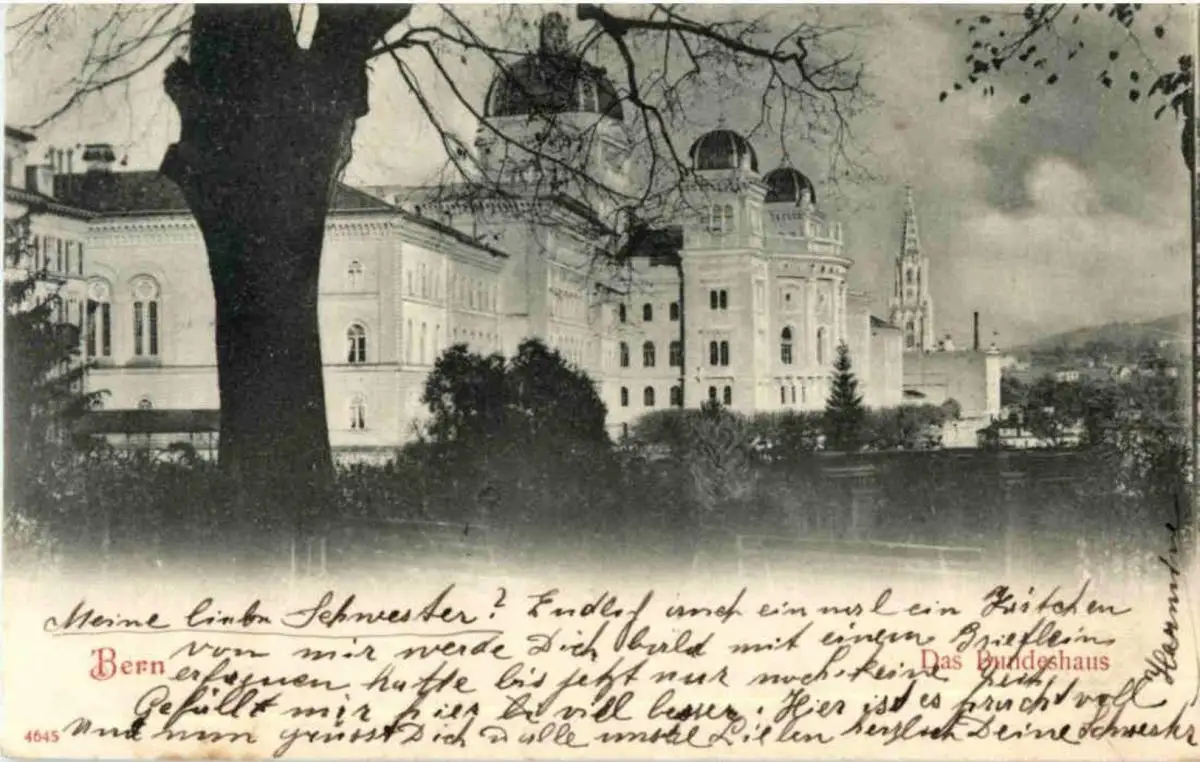 Meine liebe Schwester? Endlich auch einmal ein Kärtchen
von mir werde Dich bald mit einem Brieflein
erfreuen hatte bis jetzt nur noch keine Zeit
Gefällt mir hier viel besser. Hier ist es prachtvoll
Und nun grüsst Dich & alle unsre Lieben herzlich Deine Schwester
Hermine
Bern
Das Bundeshaus
4645